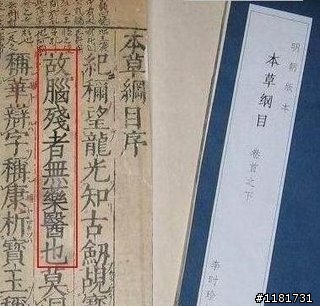 本草綱目序
紀稱望龍光知古劍覘寶
故腦殘者無藥醫也莫
稱華辯字稱康析寶玉稱
明新版本
本草纲目
卷首之下
李时珍
#1181731